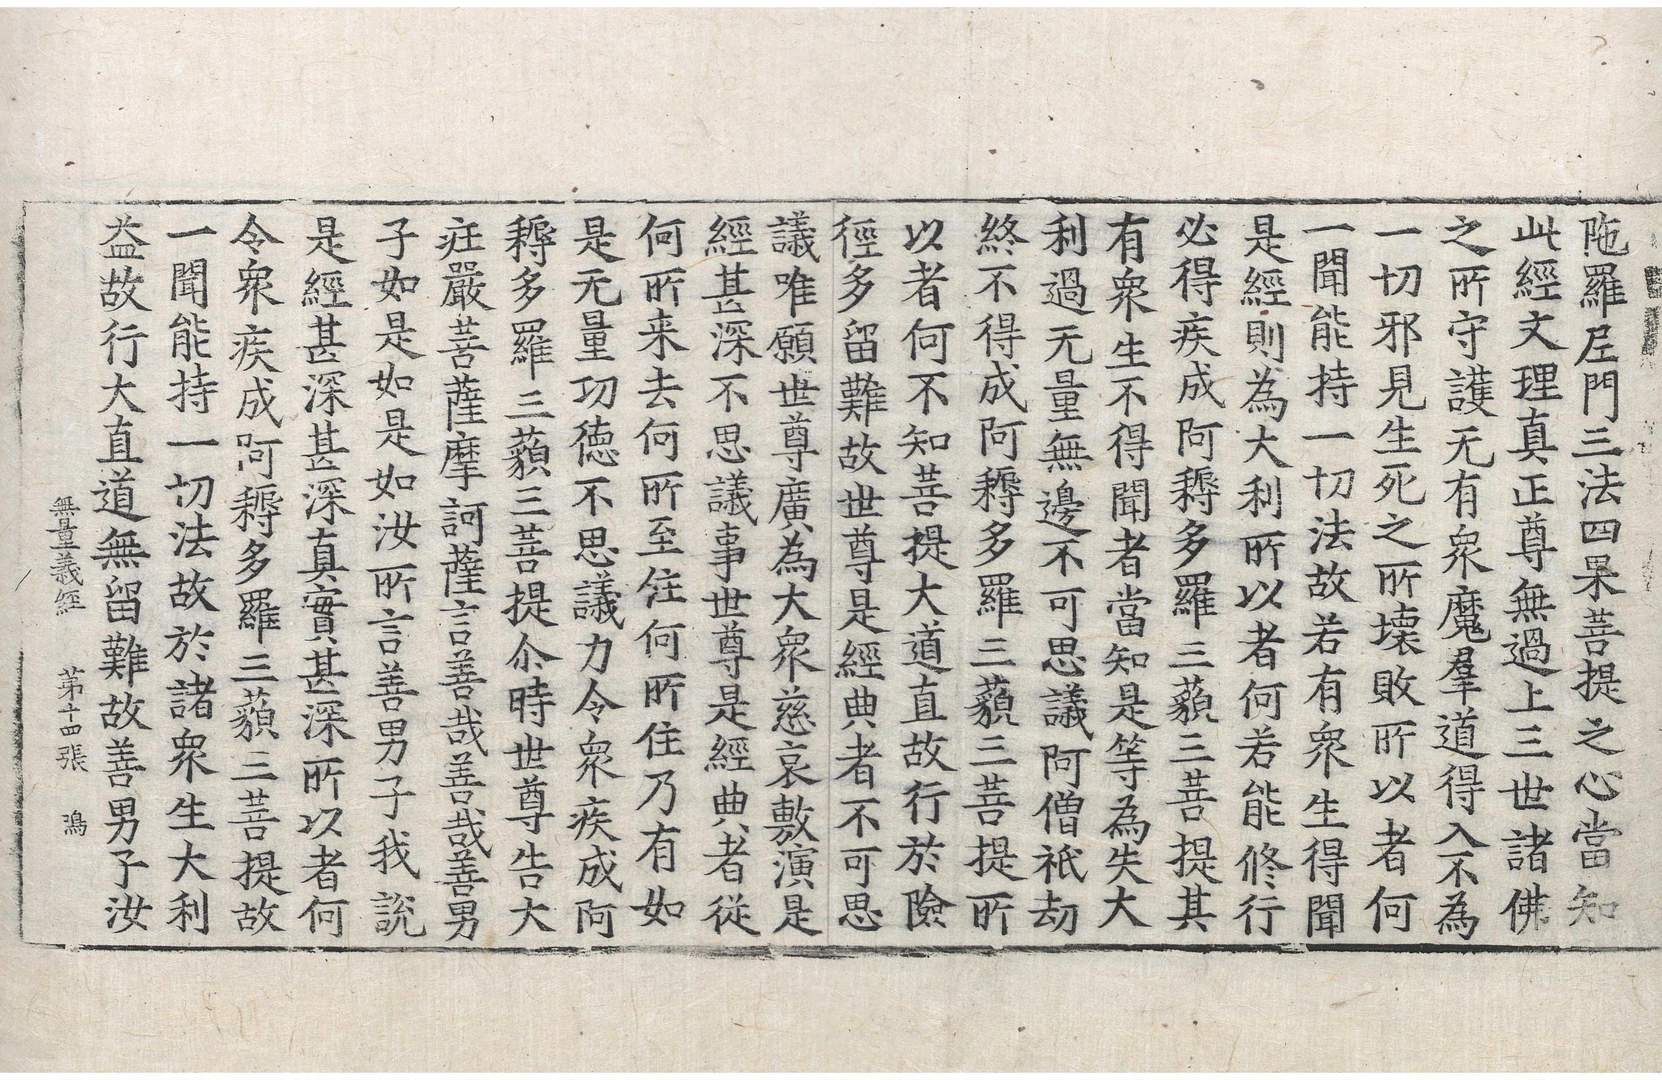 陁羅𡰱門三法四果菩提之心當知
此經文理真正尊無過上三世諸佛
之所守護无有衆魔羣道得入不為
一切邪見生死之所壞敗所以者何
一聞能持一切法故若有衆生得聞
是經則為大利所以者何若能修行
必得疾成阿耨多羅三藐三菩提其
有衆生不得聞者當知是等為失大
利過无量無邊不可思議阿僧祇劫
終不得成阿耨多羅三藐三菩提所
以者何不知菩提大道直故行於險
徑多留難故世尊是經典者不可思
議唯願世尊廣為大衆慈哀敷演是
經甚深不思議事世尊是經典者從
何所来去何所至住何所住乃有如
是无量功德不思議力令衆疾成阿
耨多羅三藐三菩提尒時世尊告大
疘嚴菩薩摩訶薩言善哉善哉善男
子如是如是如汝所言善男子我說
是經甚深甚深真實甚深所以者何
令衆疾成阿耨多羅三藐三菩提故
一聞能持一切法故於諸衆生大利
益故行大直道無留難故善男子汝
無量義經 苐十四張